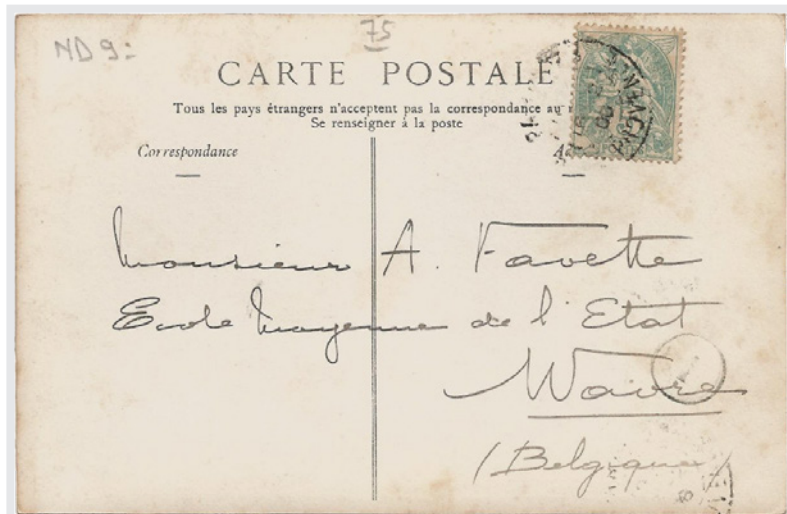 ND 9:
75
CARTE POSTALE
Tous les pays étrangers n'acceptent pas la correspondance au
Se renseigner à la poste
Correspondance
Monsieur A. Favette
Ecole Moyenne de l'Etat
Wavre
(Belgique)